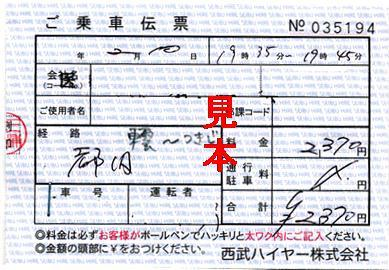 ご乗車伝票 No 035194
年 2月 日 19時35分〜19時45分
会社
(コード
ご使用者名 部課コード
見本
経路 料金 2,370円
都内 〜つきじ
通行
駐車 料 円
車号 運転者 合計 ¥2,370円
◎料金は必ずお客様がボールペンでハッキリと太ワク内にご記入ください。
◎金額の頭部に¥をおつけください。 西武ハイヤー株式会社